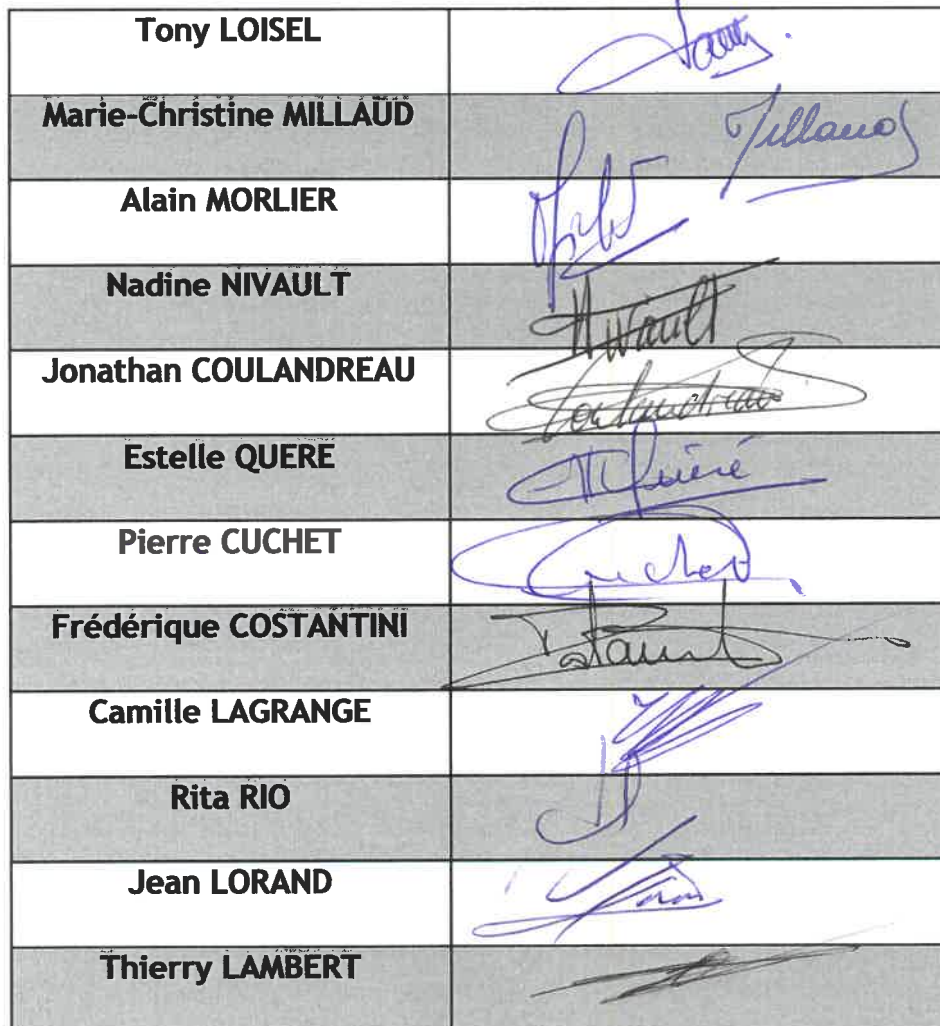 Tony LOISEL
Marie-Christine MILLAUD Millaud
Alain MORLIER
Nadine NIVAULT Nivault
Jonathan COULANDREAU Coulandreau
Estelle QUERE Quéré
Pierre CUCHET Cuchet
Frédérique COSTANTINI
Camille LAGRANGE
Rita RIO
Jean LORAND
Thierry LAMBERT